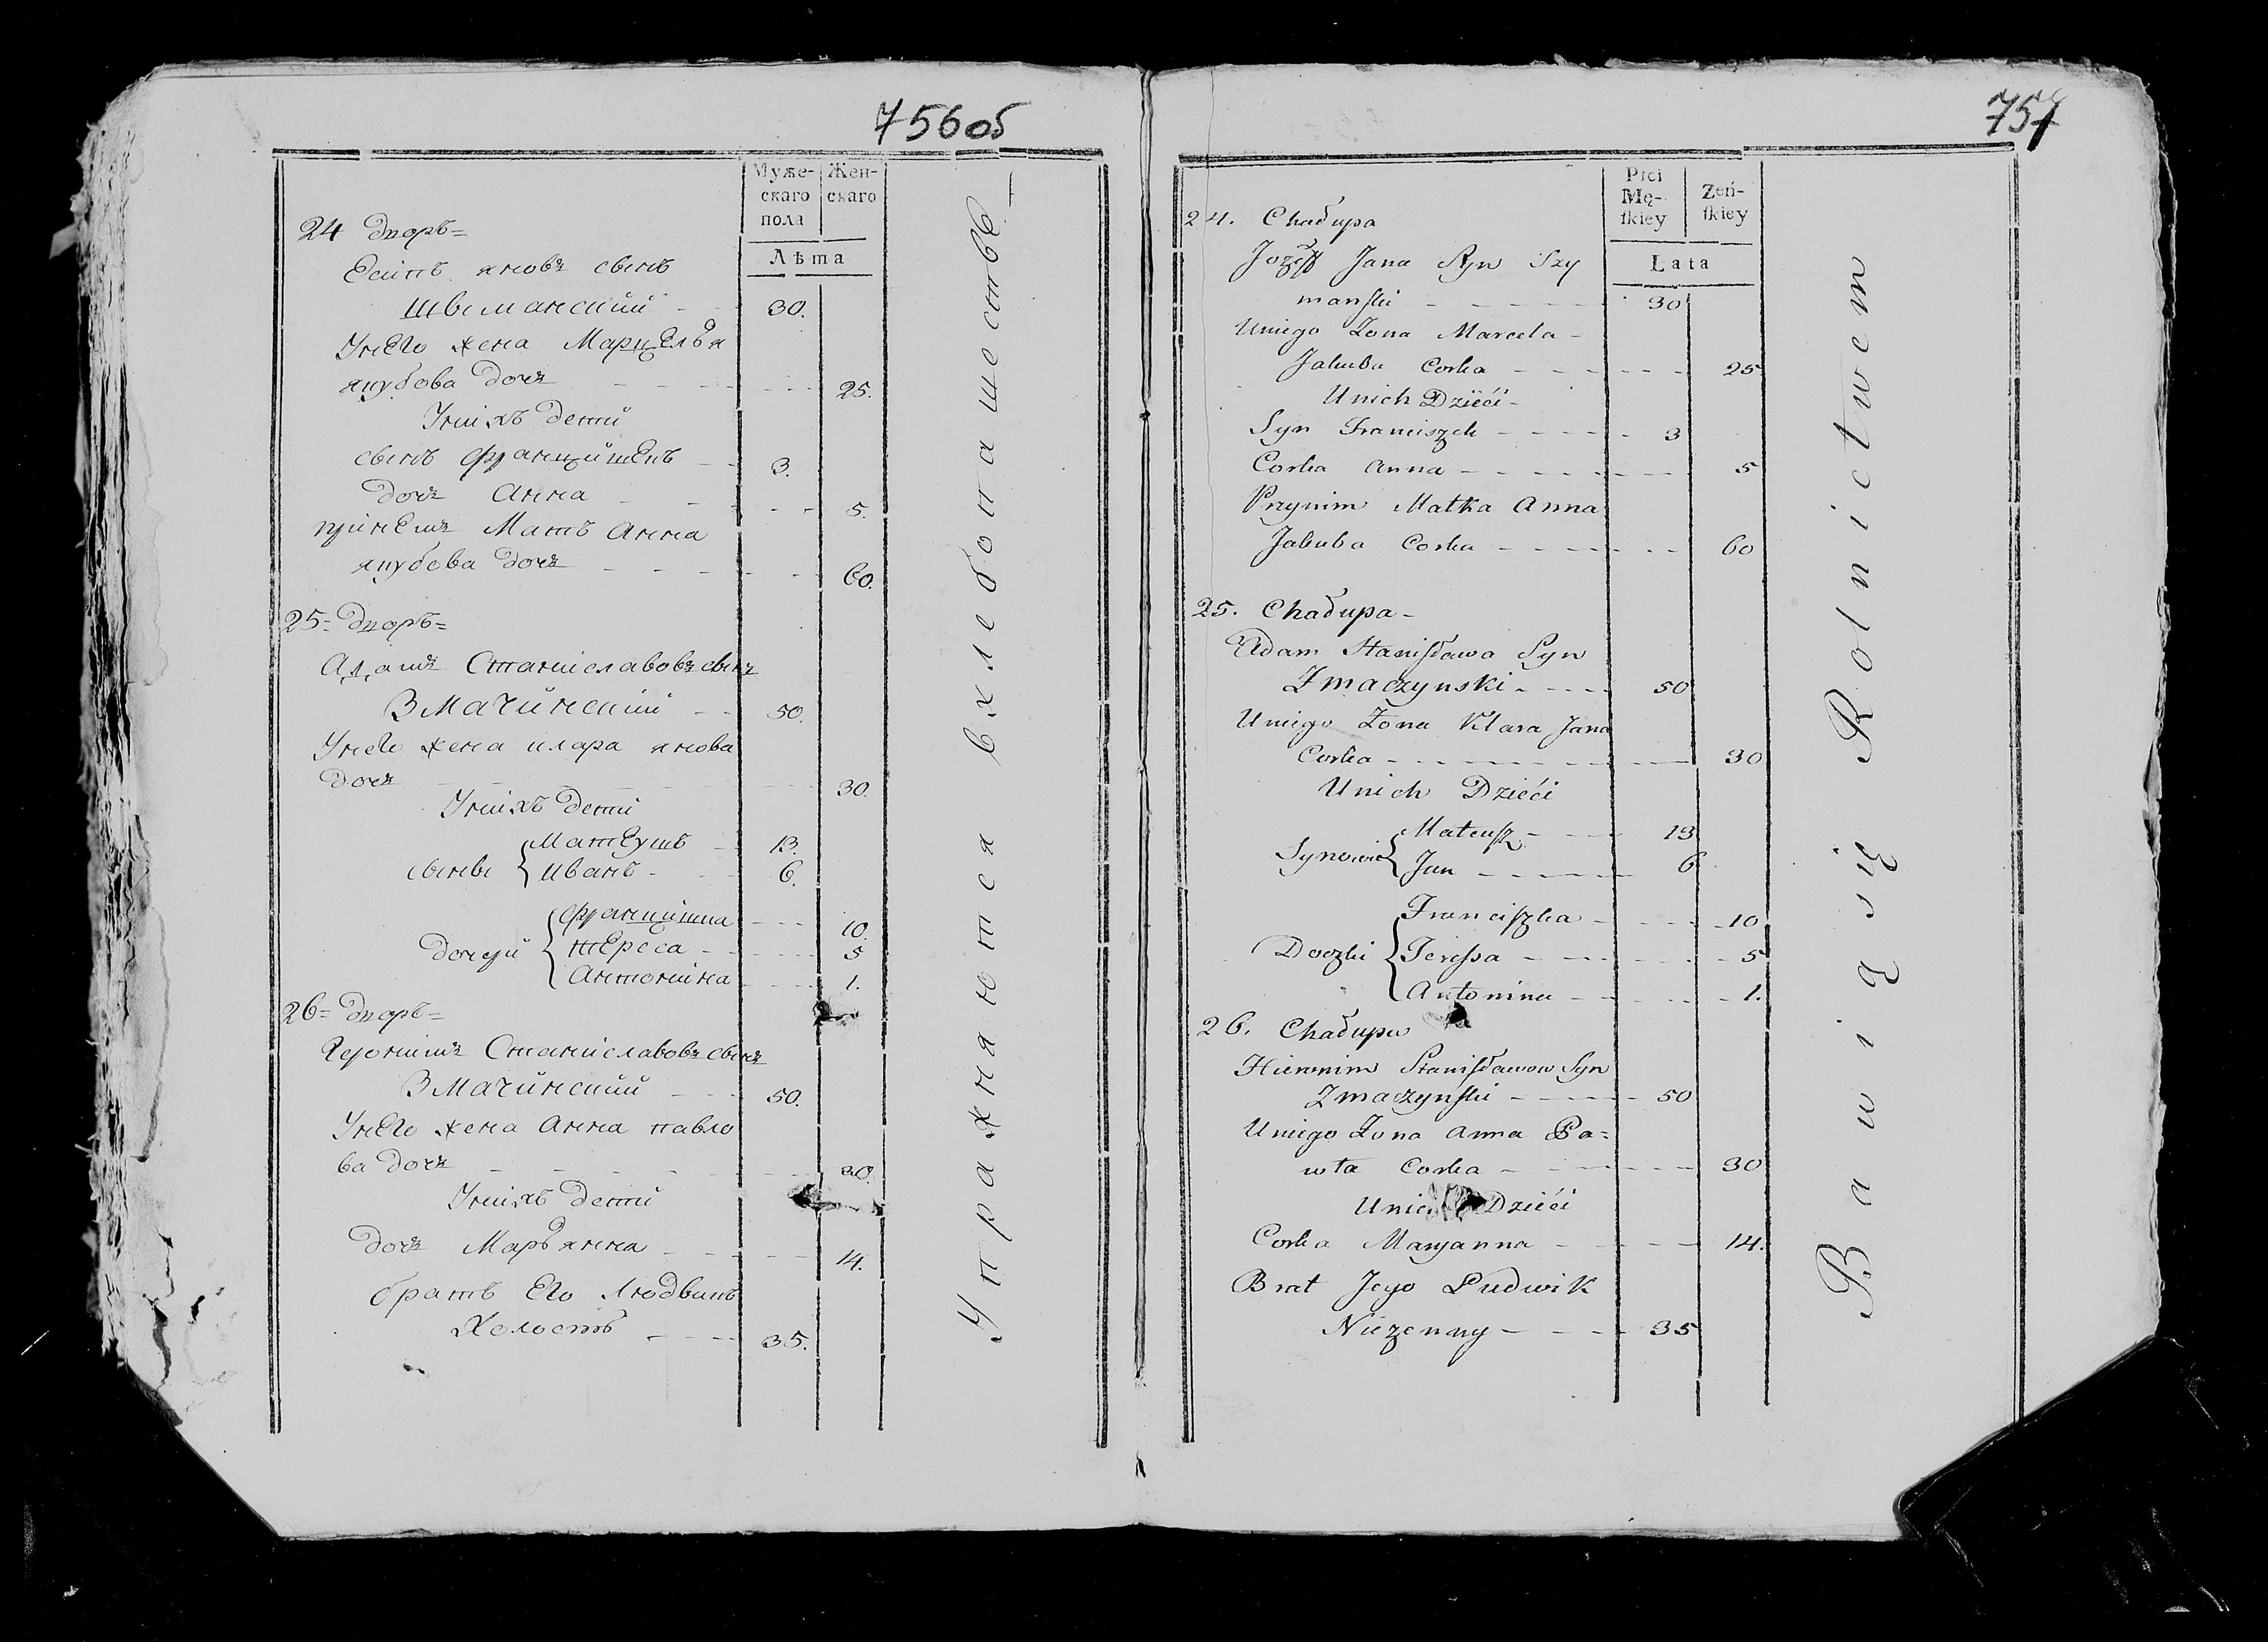 756об
Муже-
скаго
пола
Жен-
скаго
Лѣта
24 дворъ=
Есипъ яновъ сынъ
Шыманский - - 30.
Унего жена Марцелья
якубова дочь - - - - - - 25.
Унихъ дети
сынъ францишекъ - - 3.
дочь Анна - - - - - 5.
принемъ Мать Анна
якубова дочь - - - - - - 60.
25= дворъ=
Адамъ Станиславовъ сынъ
Змачинский - - 50.
Унего жена клара янова
дочь - - - - - - 30.
Унихъ дети
сыны { Матеушъ - 13.
Иванъ - - 6.
дочери { францишка - - - 10.
тереса - - - - 5
Антонина - - - 1.
26= дворъ=
Геронимъ Станиславовъ сынъ
Змачинский - - - 50.
Унего жена Анна павло
ва дочь - - - - - - 30.
Унихъ дети
дочь Марьянна - - - - - 14.
братъ Его Людвикъ
Холостъ - - - 35.
Упражняются в хлебопашестве
757
Płci
Mę-
ſkiey
Zeń-
ſkiey
Lata
24. Chałupa
Jozef Jana Syn Szy
manſki - - - - - 30
Uniego Zona Marcela -
Jakuba Corka - - - - - - 25
Unich Dzieći -
Syn Franciszek - - - - - 3
Corka Anna - - - - - - - 5
Przynim Matka Anna
Jakuba Corka - - - - - - 60
25. Chałupa -
Adam Staniſława Syn
Zmaczynski - - - - 50
Uniego Zona Klara Jana
Corka - - - - - - - - - 30
Unich Dzieći
Synowie { Mateuſz - - - 13
Jan - - - - - 6
Doczki { Franciſzka - - - - - 10
Tereſsa - - - - - - - 5
Antonina - - - - - 1.
26. Chałupa
Hieronim Staniſławow Syn
Zmaczynſki - - - - - 50
Uniego Zona Anna Pa=
wła Corka - - - - - - 30
Unich Dzieći
Corka Maryanna - - - - 14.
Brat Jego Ludwik
Niezenny - - - - 35
Bawią się Rolnictwem